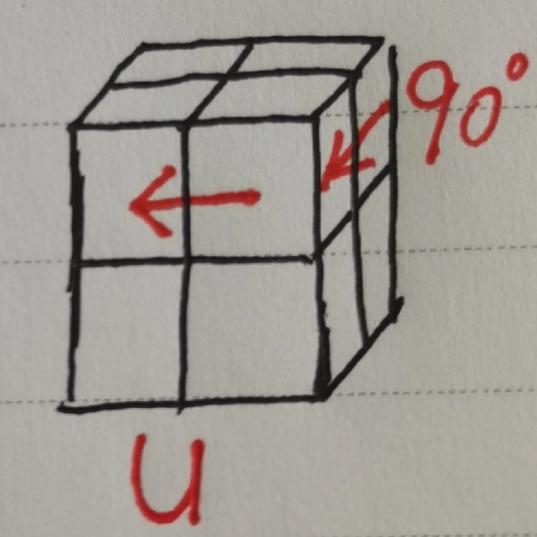 90°
U